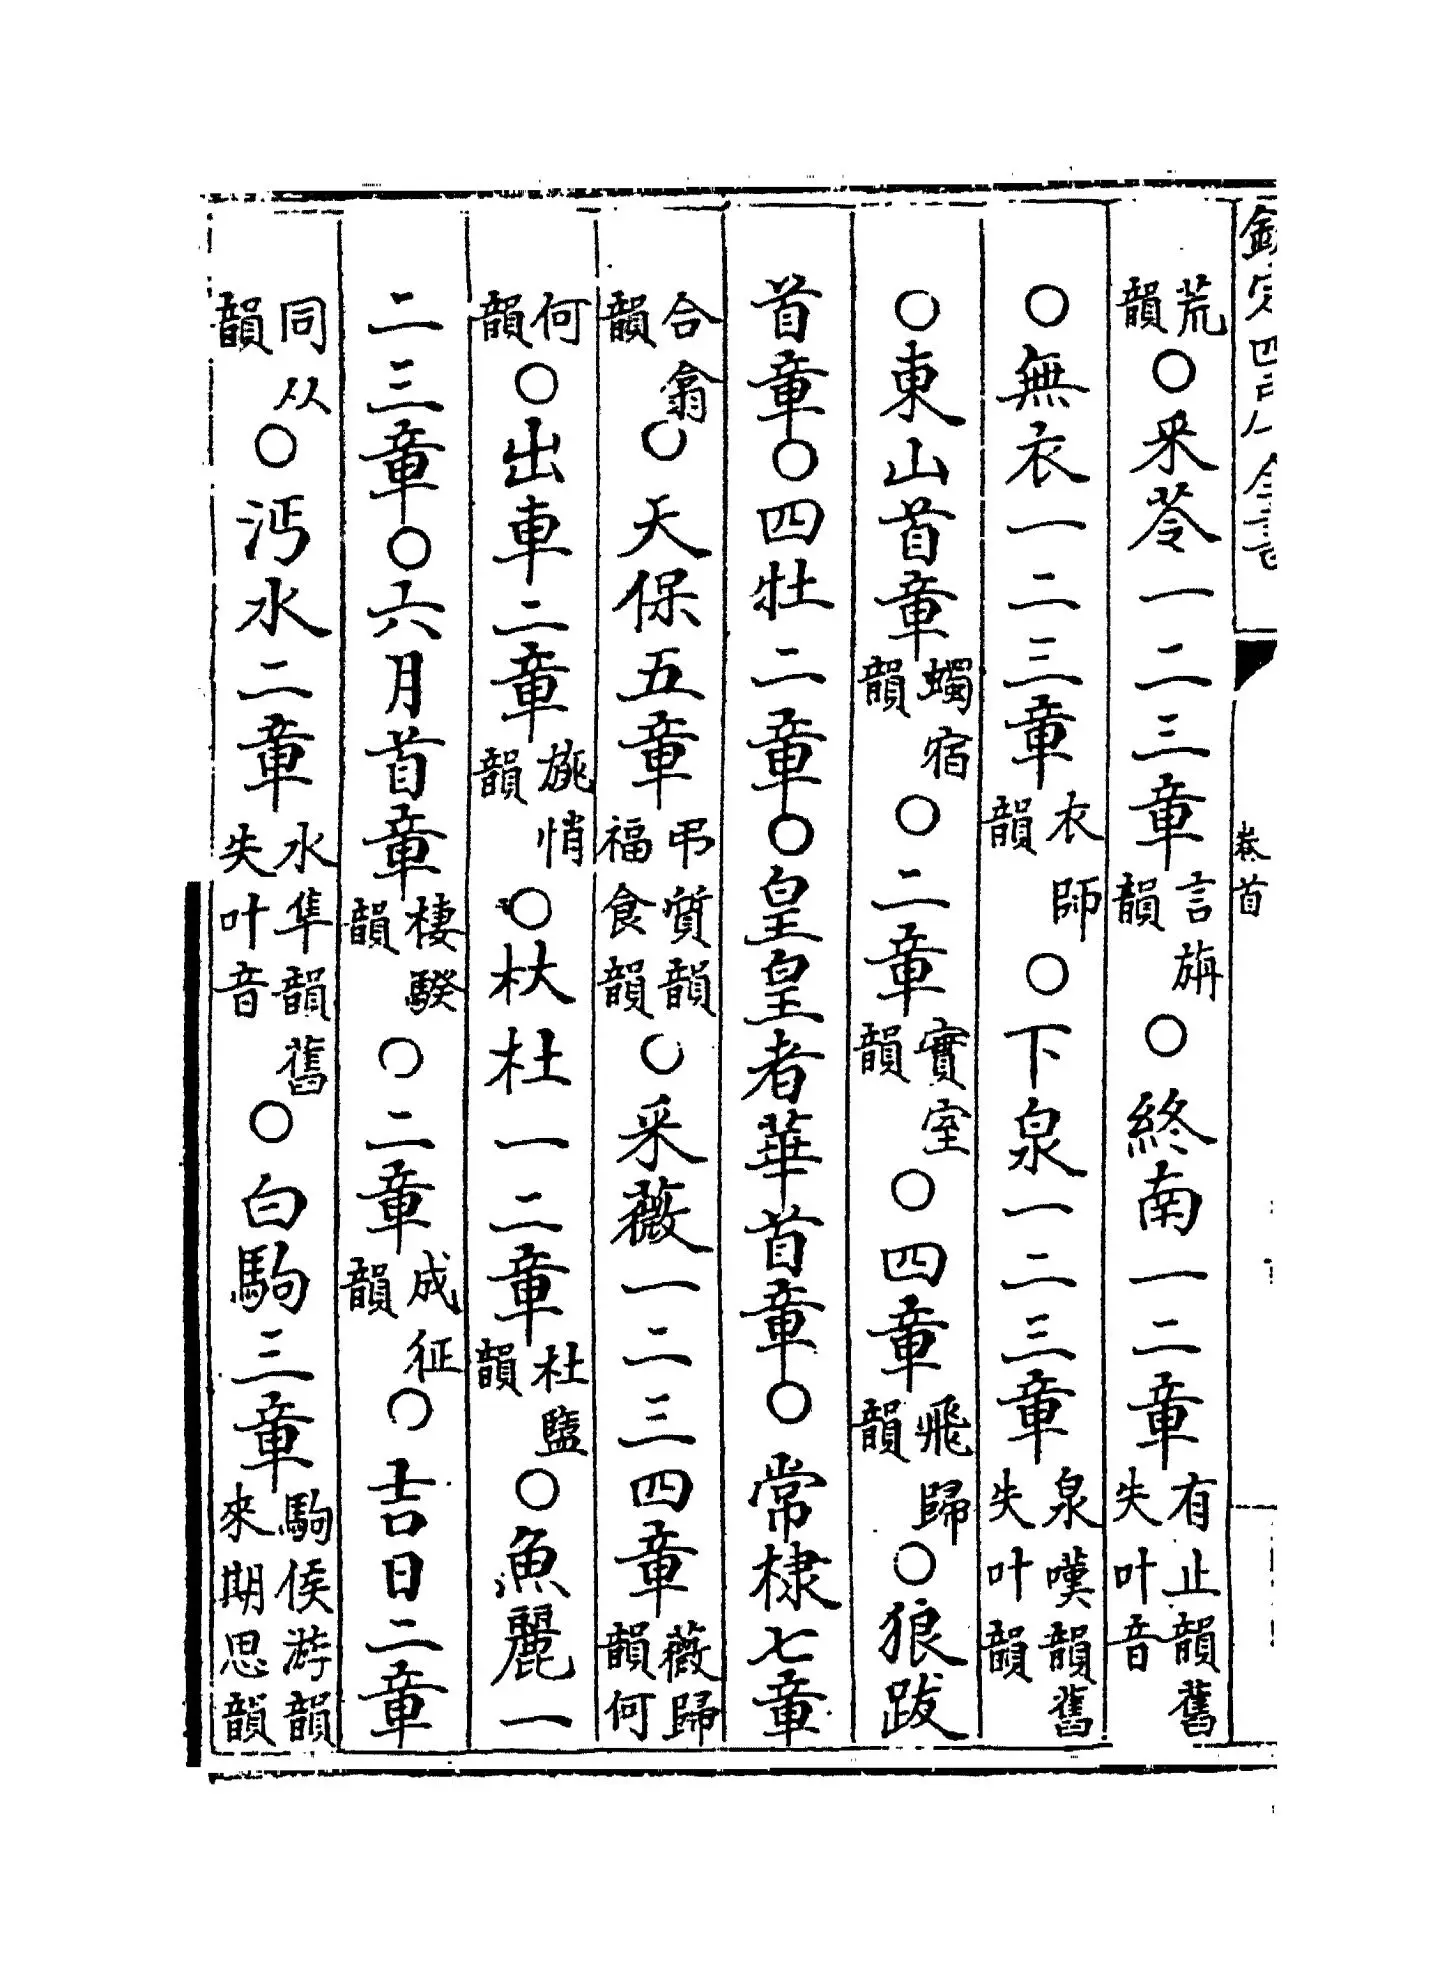 欽定四庫全書 卷首
荒韻○采苓一二三章言旃韻○終南一二章有止韻舊失叶音
○無衣一二三章衣師韻○下泉一二三章泉嘆韻舊失叶韻
○東山首章蠋宿韻○二章實室韻○四章飛歸韻○狼跋
首章○四牡二章○皇皇者華首章○常棣七章
合翕韻○天保五章弔質韻福食韻○采薇一二三四章薇歸韻何
何韻○出車二章旐悄韻○杕杜一二章杜盬韻○魚麗一
二三章○六月首章棲騤韻○二章成征韻○吉日二章
同从韻○沔水二章水隼韻舊失叶音○白駒三章駒侯游韻來期思韻